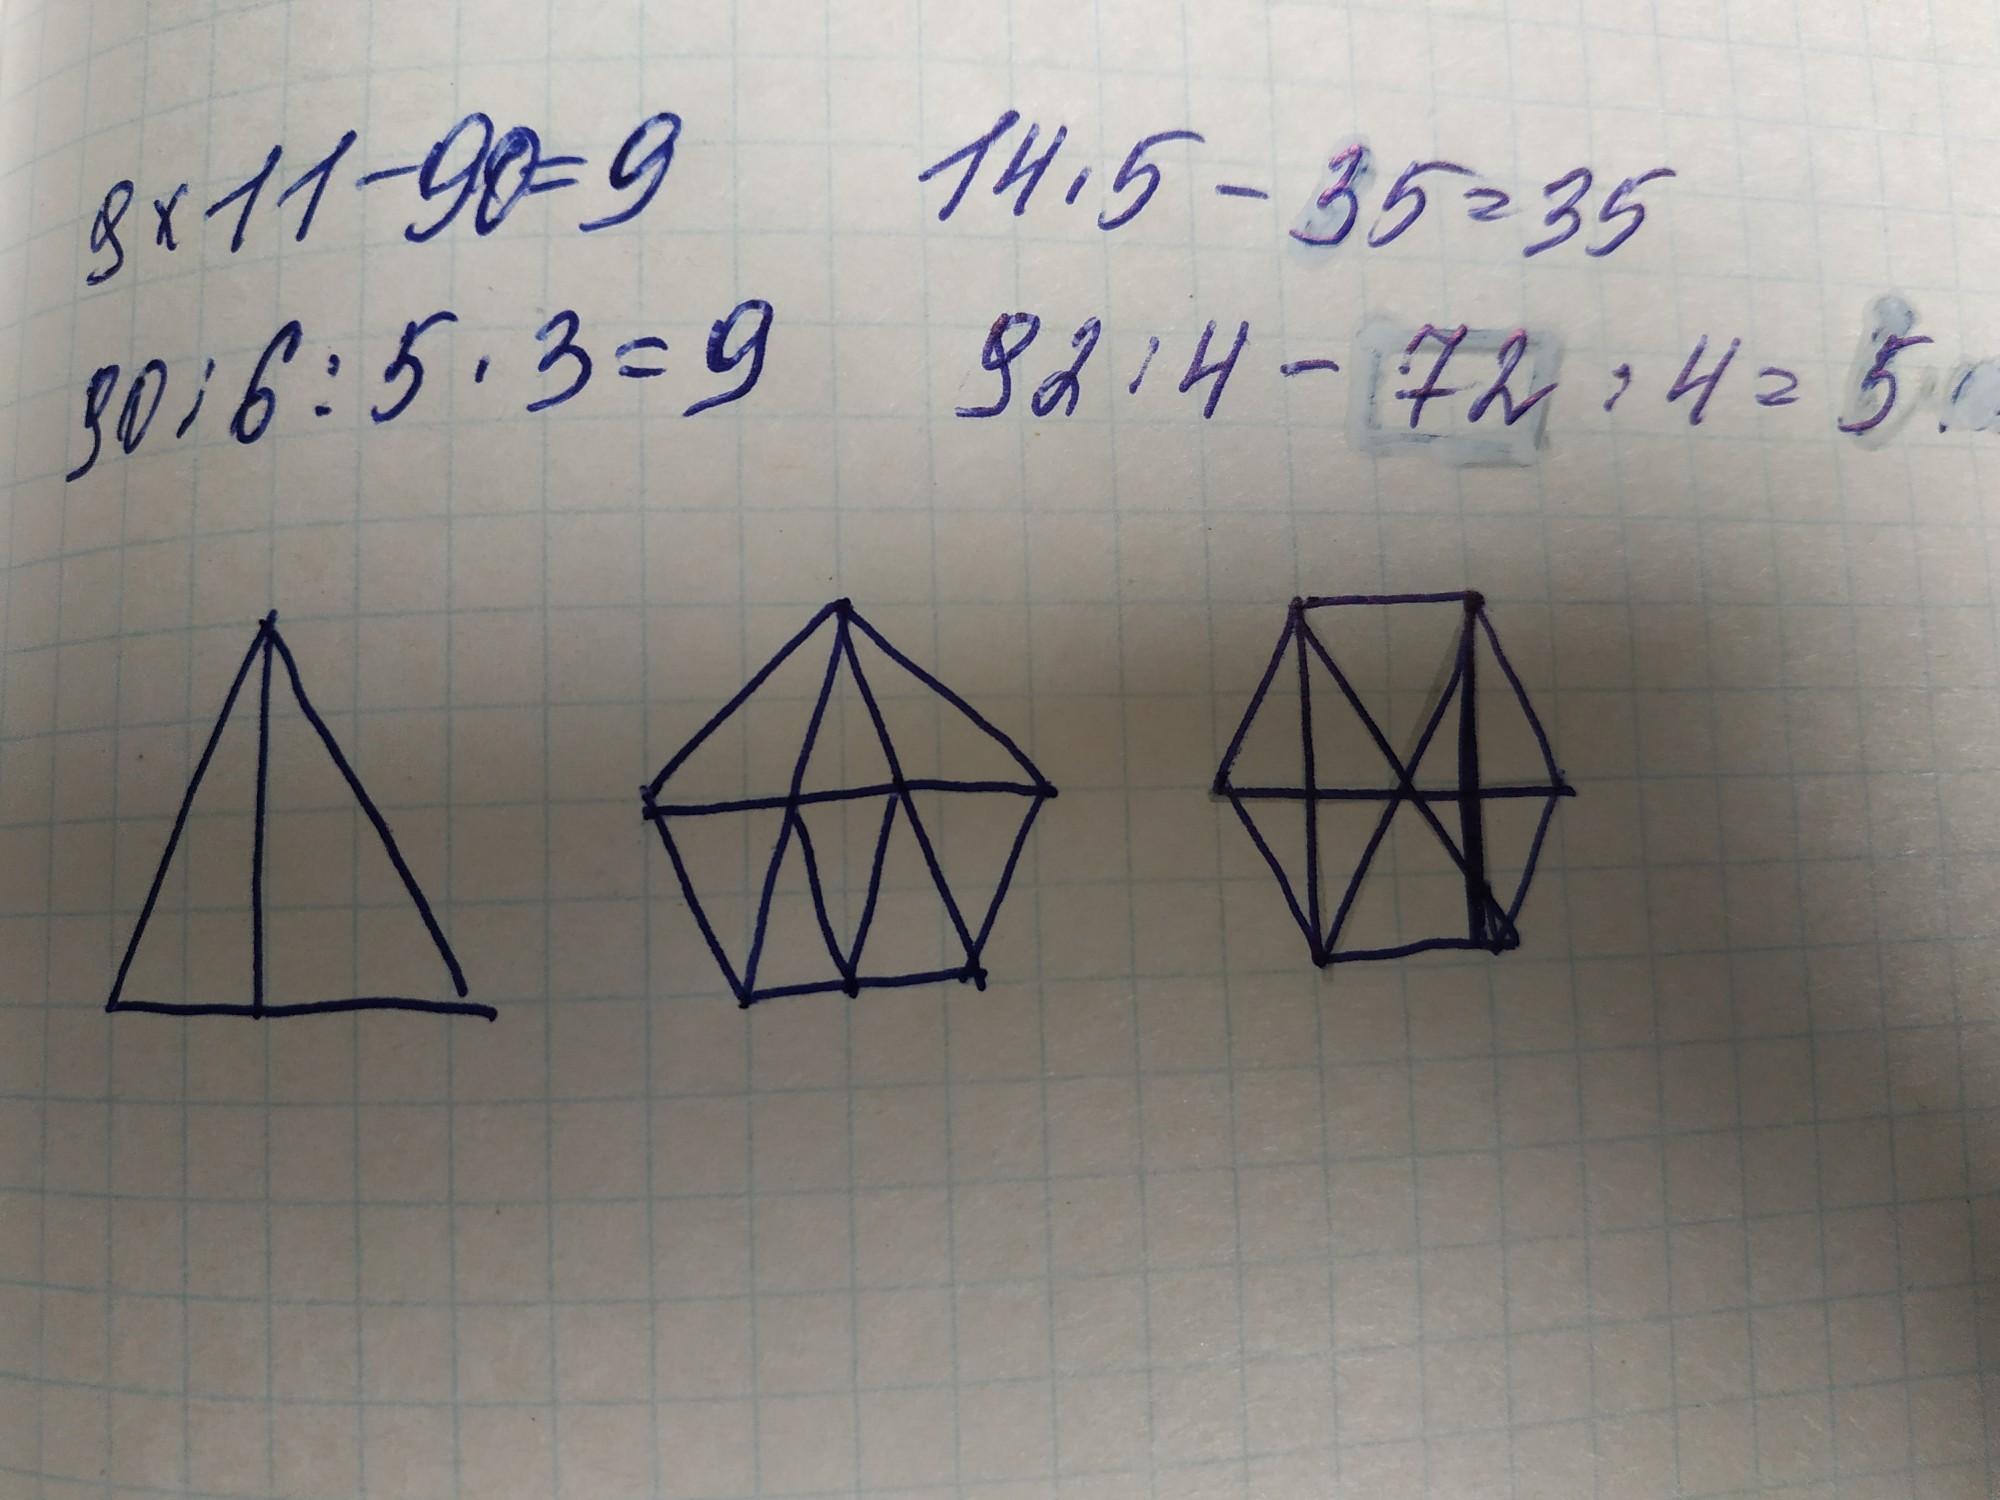 9x11-90=9
14·5-35=35
90:6:5·3=9
92:4-72:4=5